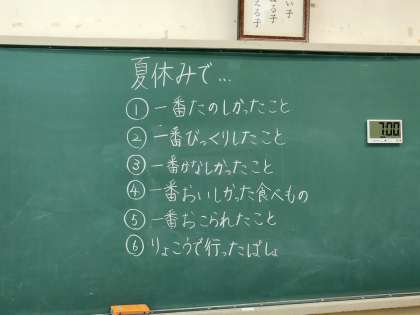 い子
える子
える子
夏休みで…
① 一番たのしかったこと
② 一番びっくりしたこと
③ 一番かなしかったこと
④ 一番おいしかった食べもの
⑤ 一番おこられたこと
⑥ りょこうで行ったばしょ
7:00